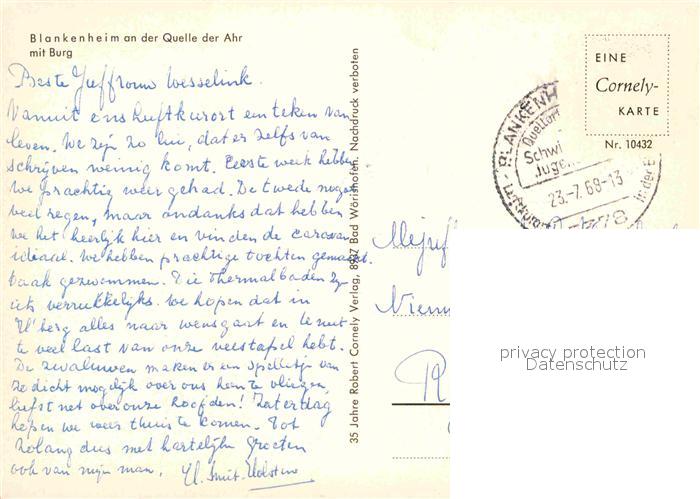 Blankenheim an der Quelle der Ahr
mit Burg
Beste Juffrouw Wesselink.
Vanuit ons luftkurort een teken van
leven. We zijn zo lui, dat er zelfs van
schrijven weinig komt. Eerste week hebben
we prachtig weer gehad. De tweede nogal
veel regen, maar ondanks dat hebben
we het heerlijk hier en vinden de caravan
ideaal. We hebben prachtige tochten gemaakt.
Vaak gezwommen. Die thermalbaden zijn
iets verrukkelijks. We hopen dat in
alles naar wens gaat en U niet
te veel last van onze veestapel hebt.
De zwaluwen maken er een spelletje van
zo dicht mogelijk over ons heen te vliegen,
liefst net over onze hoofden! Zaterdag
hopen we weer thuis te komen. Tot
zolang dus met hartelijke groeten
ook van mijn man.
35 Jahre Robert Cornely Verlag, 8937 Bad Wörishofen. Nachdruck verboten
EINE
Cornely-
KARTE
Nr. 10432
BLANKENH
Schwi
Jugen
23.-7.68-13
Luftkuror
in der E
Mejuf
privacy protection
Datenschutz